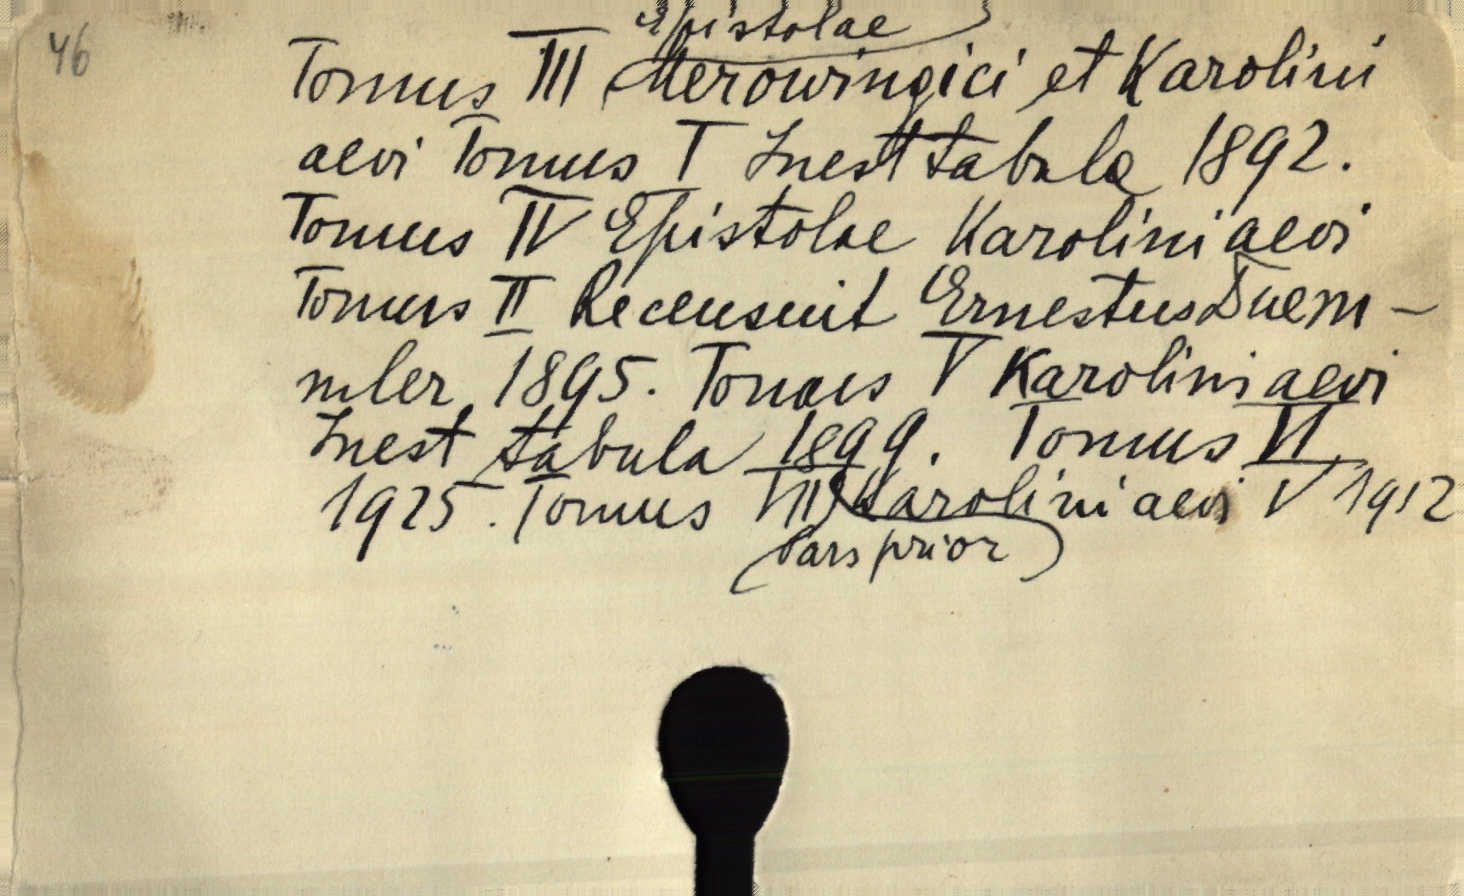 46
Epistolae
Tomus III Merowingici et Karolini
aevi Tomus I Inest tabula 1892.
Tomus IV Epistolae Karolini aevi
Tomus II Recensuit Ernestus Duem-
mler 1895. Tomus V Karolini aevi
Inest tabula 1899. Tomus VI
1925. Tomus VII Karolini aevi V 1912
(Pars prior)